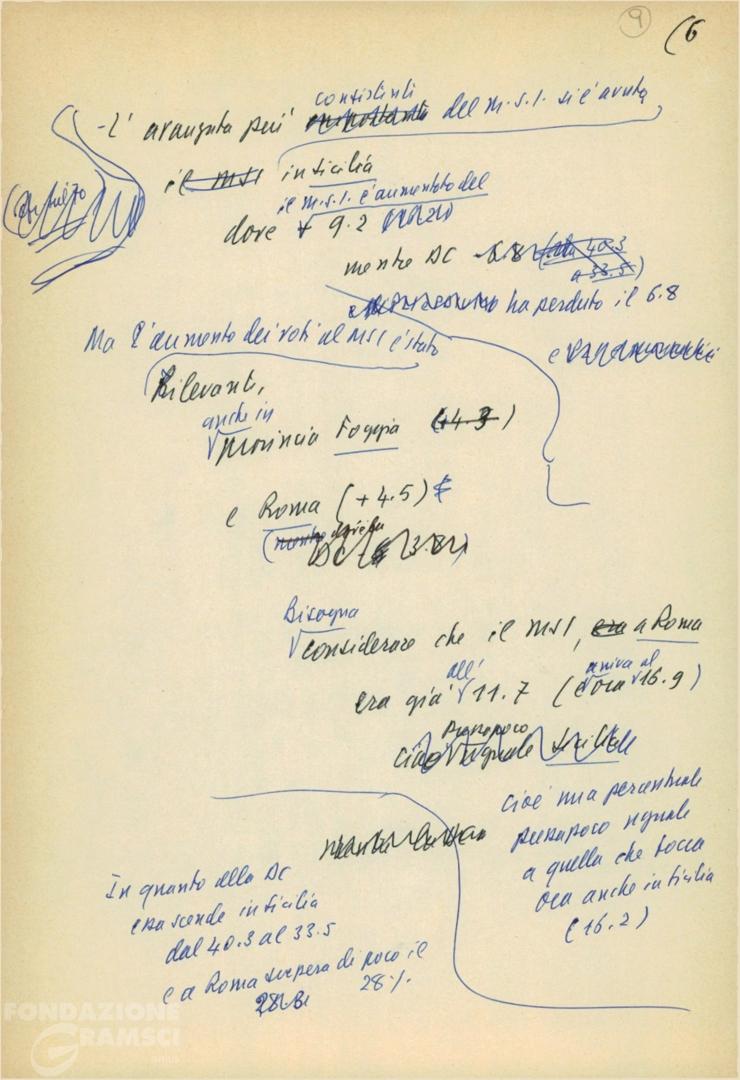 9 (6
consistenti
- L' avanzata più del M.S.I. si è avuta
il MSI in Sicilia
il M.S.I. è aumentato del
dove + 9.2
mentre DC - 6.8 (da 40.3
a 33.5)
ha perduto il 6.8
Ma l'aumento dei voti al MSI è stato
e
Rilevanti,
anche in
provincia Foggia (+4.3)
e Roma (+4.5)
(mentre
DC - 3.8)
Bisogna
considerare che il MSI, era a Roma
all' arriva al
era già 11.7 (e ora 16.9)
pressapoco
ciao uguale Sicilia
cioè una percentuale
pressapoco uguale
a quella che tocca
ora anche in Sicilia
(16.2)
In quanto alla DC
essa scende in Sicilia
dal 40.3 al 33.5
e a Roma supera di poco il
28%
FONDAZIONE
GRAMSCI
onlus